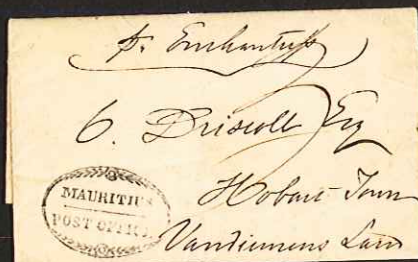 pr. Enchantress
C. Driscoll Esq
Hobart Town
Vandiemens Land
MAURITIUS
POST OFFICE